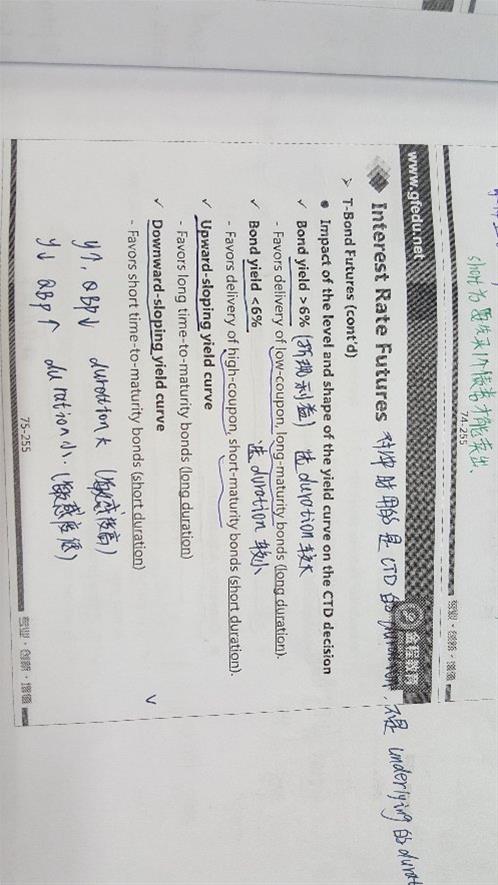 short为
才能卖出.
74-255
营业·创新·增值
www.gfedu.net
金程教育
Interest Rate Futures 对冲时用的是 CTD 的 duration, 不是 underlying 的 durat
➢ T-Bond Futures (cont'd)
● Impact of the level and shape of the yield curve on the CTD decision
✓ Bond yield > 6% (折现利益) 选 duration 较大
- Favors delivery of low-coupon, long-maturity bonds (long duration).
✓ Bond yield <6% 选 duration 较小
- Favors delivery of high-coupon, short-maturity bonds (short duration).
✓ Upward-sloping yield curve
- Favors long time-to-maturity bonds (long duration)
✓ Downward-sloping yield curve
- Favors short time-to-maturity bonds (short duration)
y↑. QBP↓ duration大 (敏感度高)
y↓ QBP↑ duration小. (敏感度低)
75-255